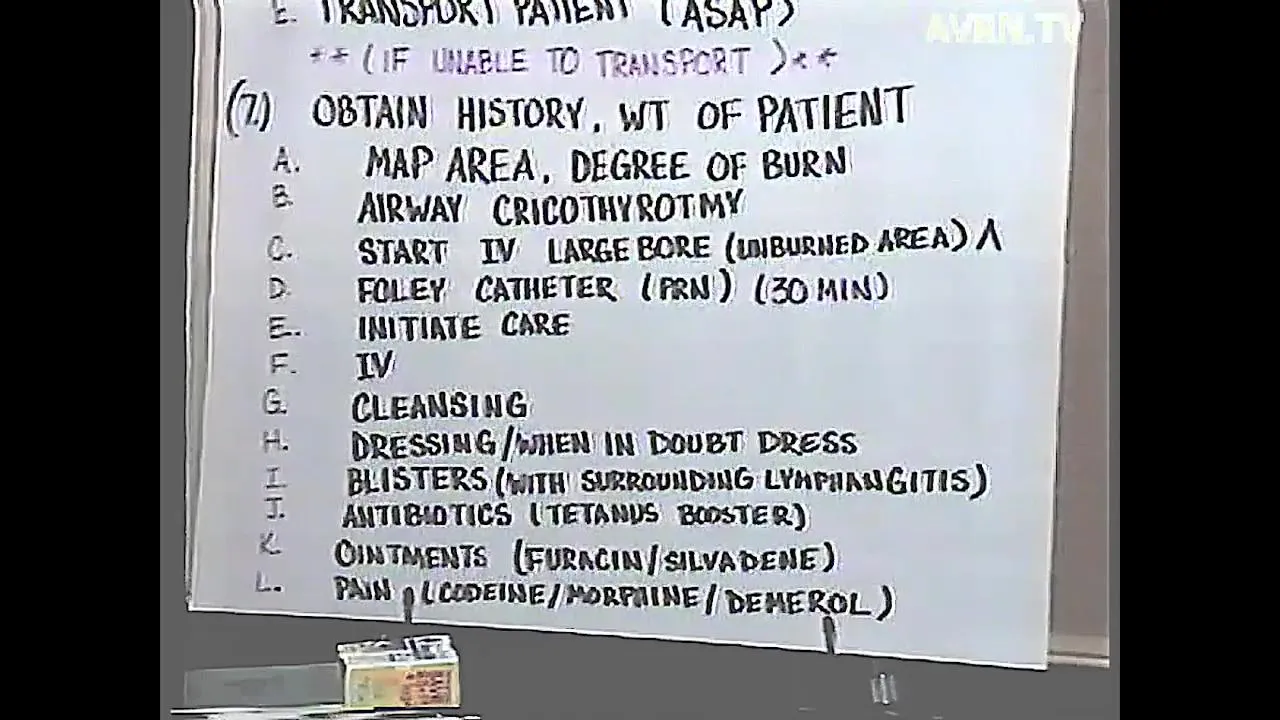 E. TRANSPORT PATIENT (ASAP)
AVAN.TV
**(IF UNABLE TO TRANSPORT)**
(7.) OBTAIN HISTORY, WT OF PATIENT
A. MAP AREA, DEGREE OF BURN
B. AIRWAY CRICOTHYROTMY
C. START IV LARGE BORE (UNBURNED AREA) Λ
D. FOLEY CATHETER (PRN) (30 MIN)
E. INITIATE CARE
F. IV
G. CLEANSING
H. DRESSING/WHEN IN DOUBT DRESS
I. BLISTERS (WITH SURROUNDING LYMPHANGITIS)
J. ANTIBIOTICS (TETANUS BOOSTER)
K. OINTMENTS (FURACIN/SILVADENE)
L. PAIN (CODEINE/MORPHINE/DEMEROL)